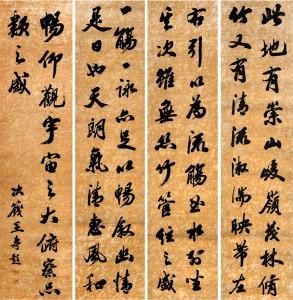 此地有崇山峻嶺茂林脩
竹又有清流激湍映帶左
右引以為流觴曲水列坐
其次雖無絲竹管弦之盛
一觴一詠亦足以暢敘幽情
是日也天朗氣清惠風和
暢仰觀宇宙之大俯察品
類之盛
次籛王壽彭